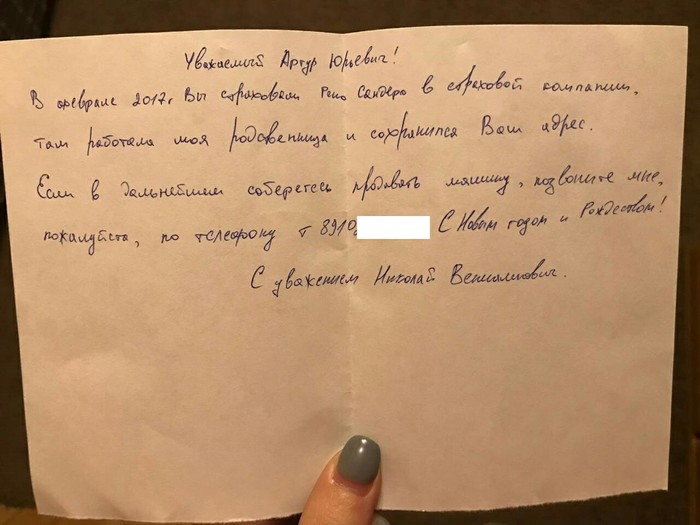 Уважаемый Артур Юрьевич!
В феврале 2017г Вы страховали Рено Сандеро в страховой компании,
там работала моя родственница и сохранился Ваш адрес.
Если в дальнейшем соберетесь продавать машину, позвоните мне,
пожалуйста, по телефону т 8910 С Новым годом и Рождеством!
С уважением Николай Вениаминович.